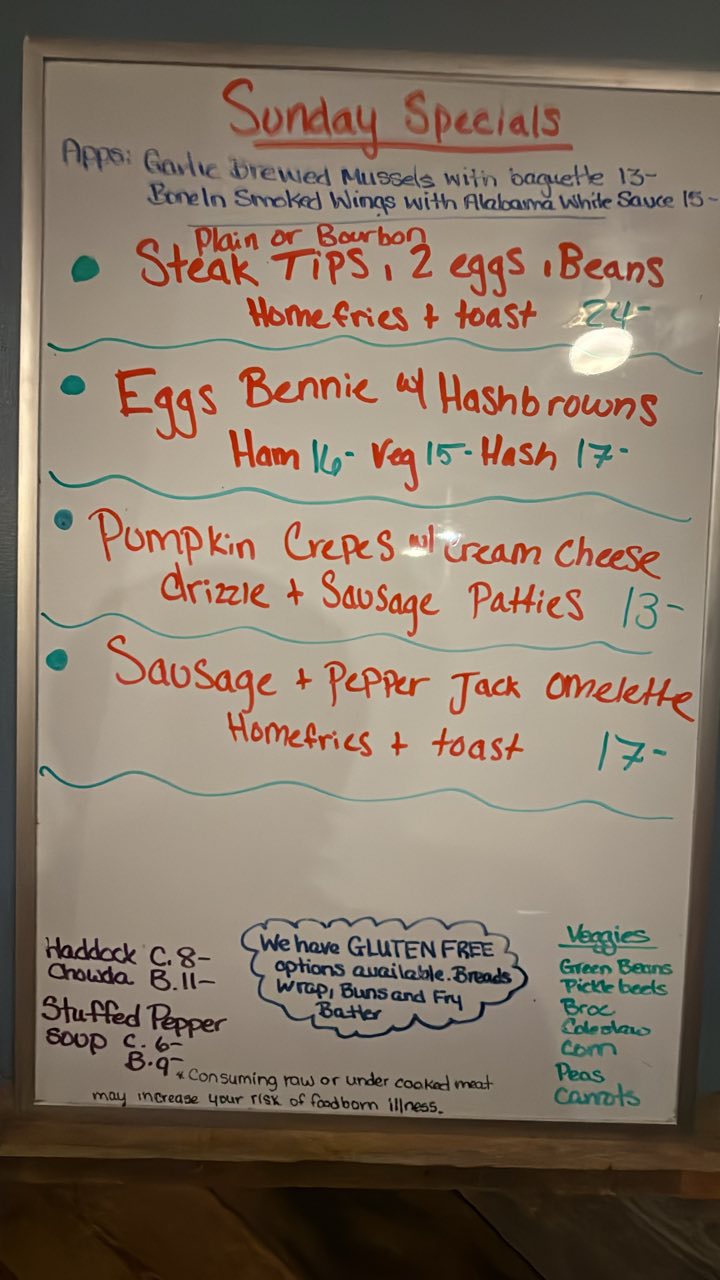 Sunday Specials
Apps: Garlic Brewed Mussels with baguette 13-
BoneIn Smoked Wings with Alabama White Sauce 15-
Plain or Bourbon
Steak TIPS, 2 eggs, Beans
Homefries + toast 24-
Eggs Bennie w/ Hashbrowns
Ham 16- Veg 15- Hash 17-
Pumpkin Crepes w/ cream cheese
drizzle + Sausage Patties 13-
Sausage + Pepper Jack omelette
Homefries + toast 17-
Haddock C. 8-
Chowda B. 11-
Stuffed Pepper
soup C. 6-
B. 9-
We have GLUTEN FREE
options available. Breads
Wrap, Buns and Fry
Batter
Veggies
Green Beans
Pickle beets
Broc
Coleslaw
Corn
Peas
Carrots
* Consuming raw or under cooked meat
may increase your risk of foodborn illness.